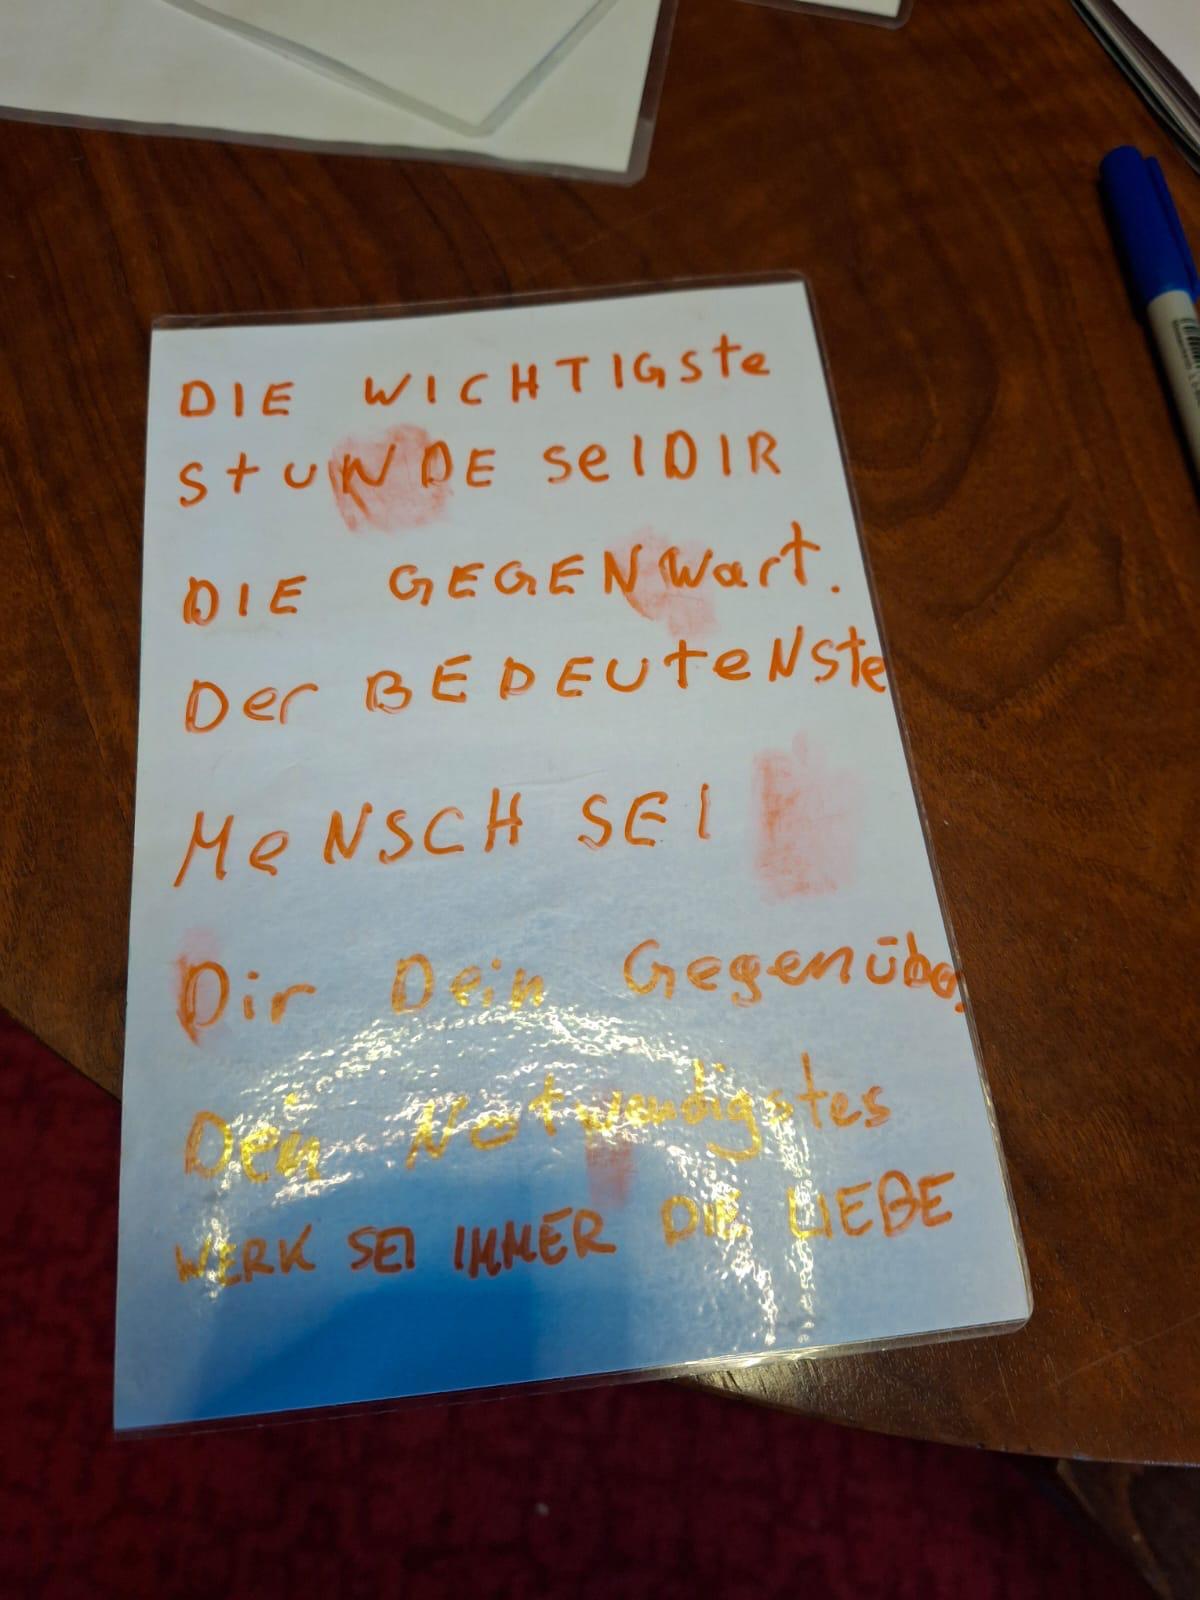 DIE WICHTIGste
StUNDE seIDIR
DIE GEGENWart.
Der BEDEUteNste
MeNSCH SEI
Dir Dein Gegenüber
Dein Notwendigstes
WERK SEI IMMER DIE LIEBE